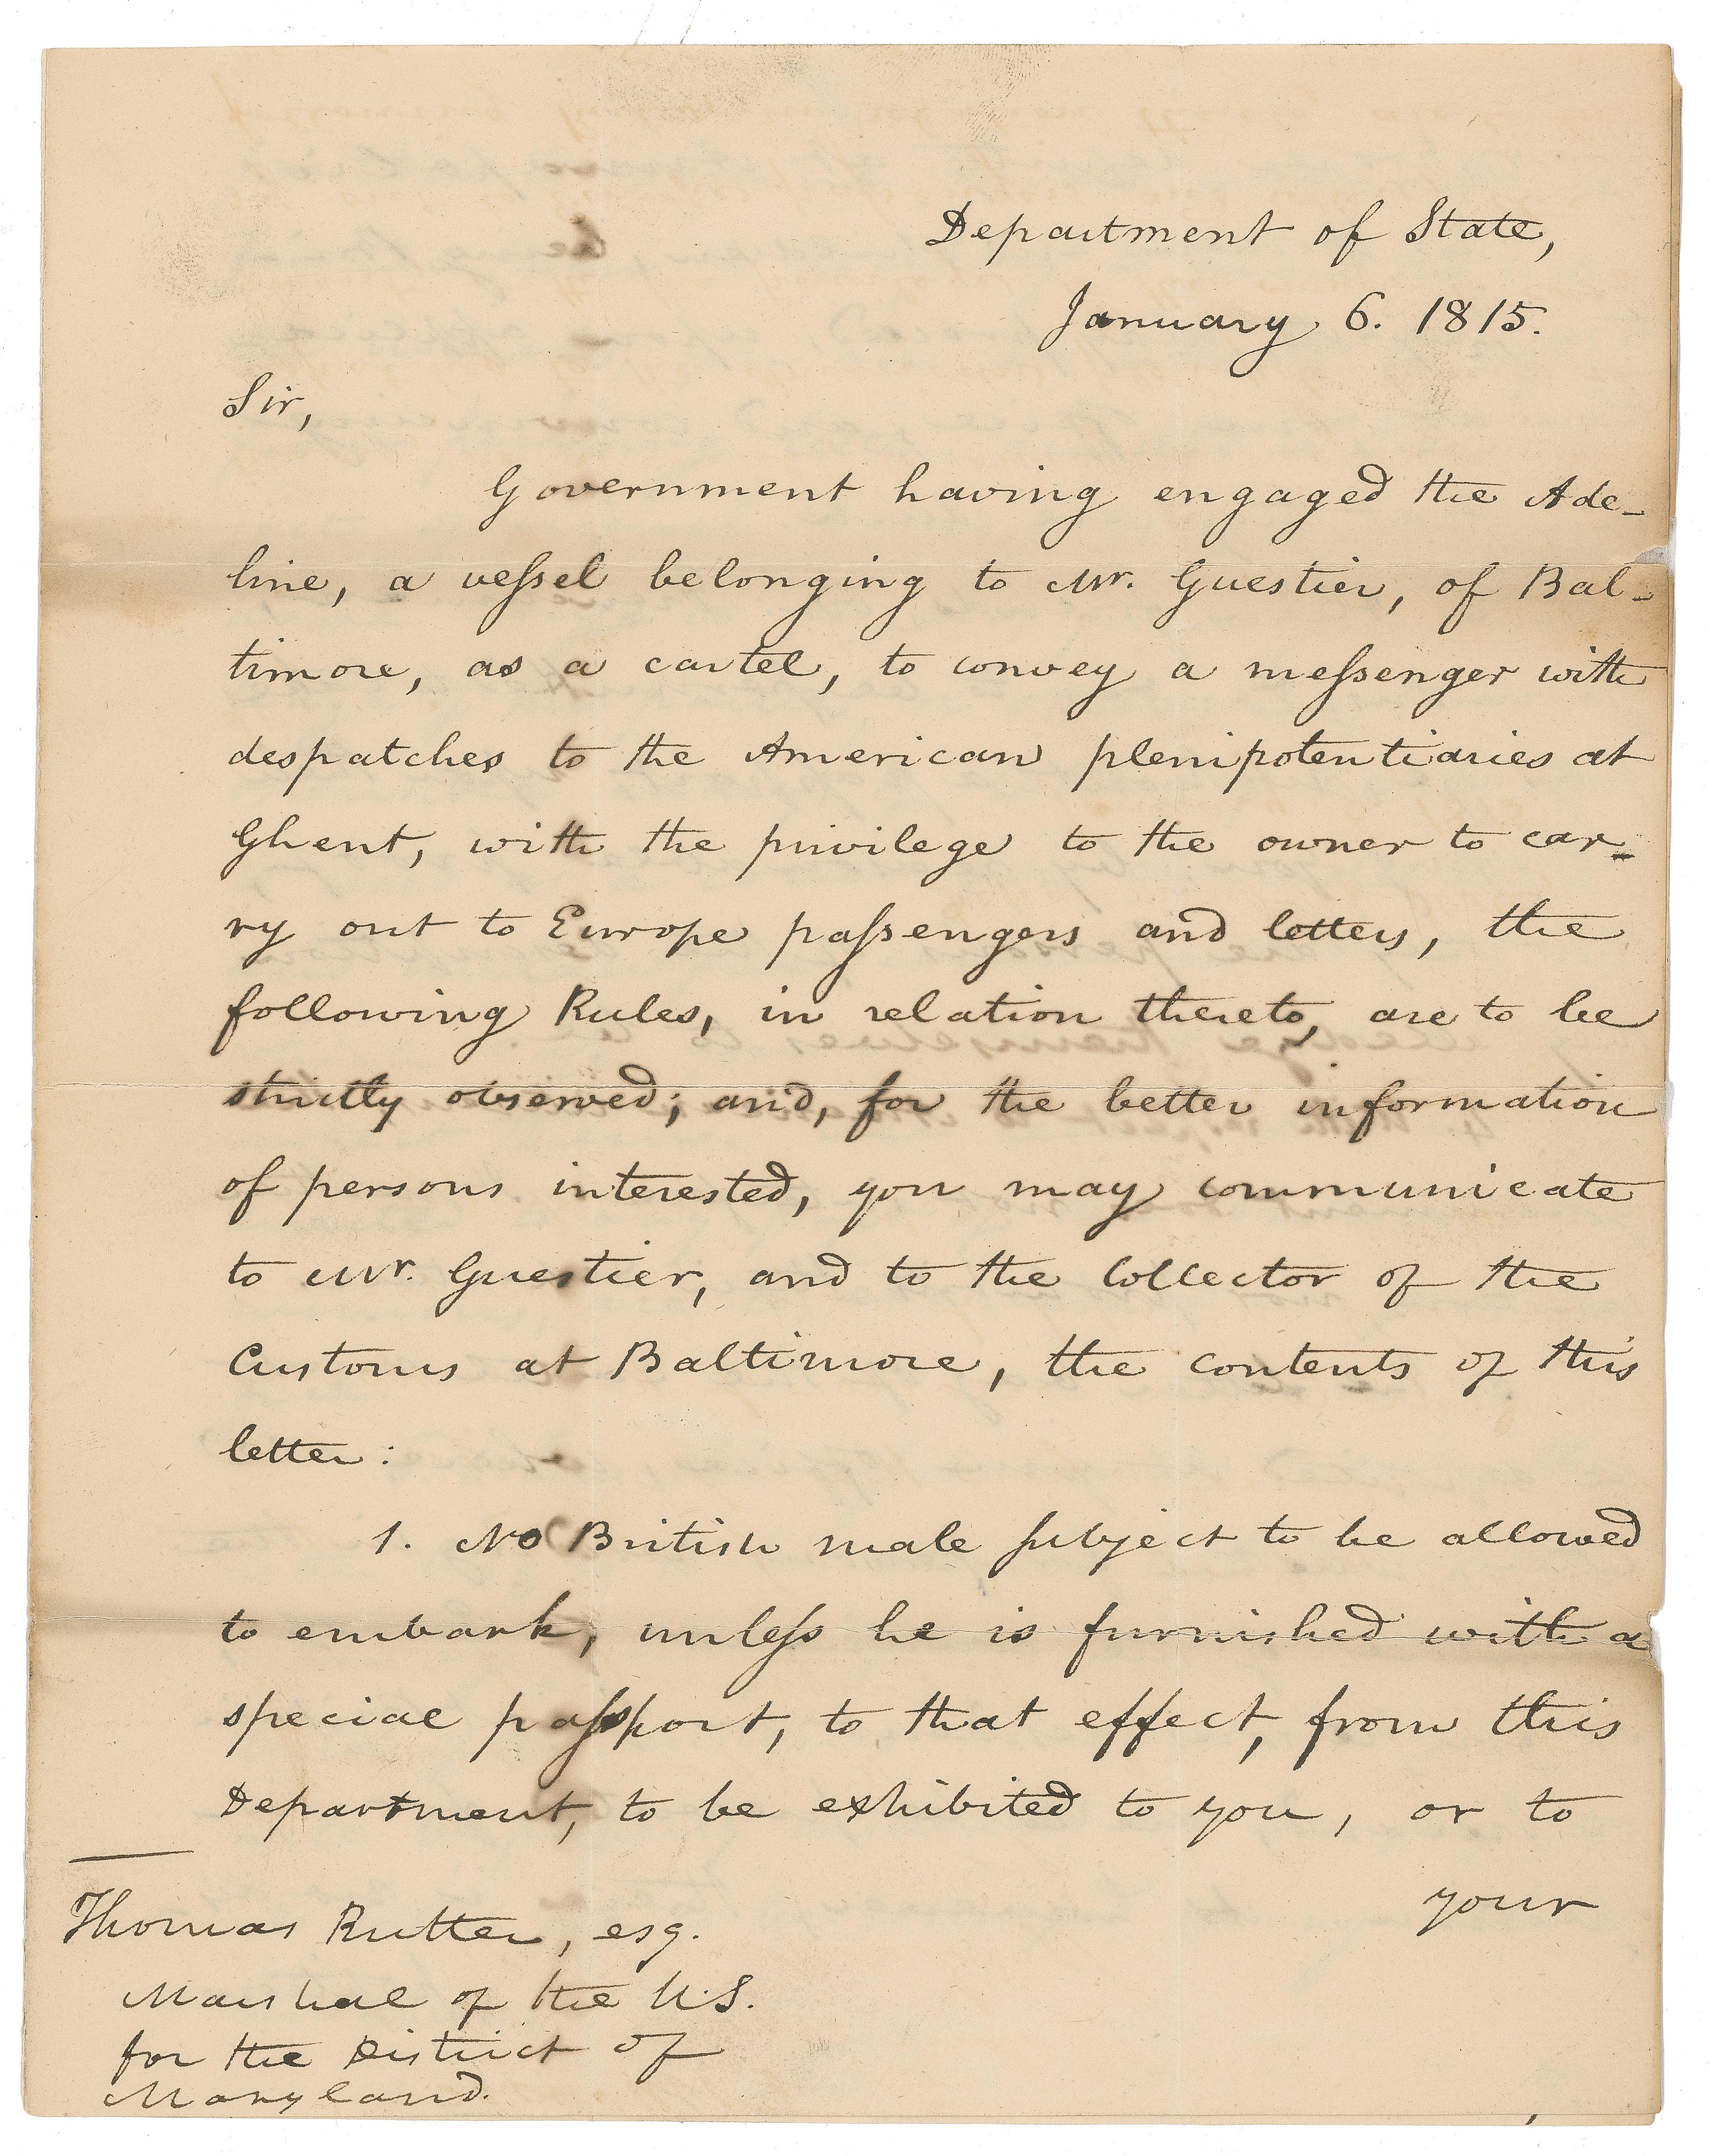 Department of State,
January 6. 1815.
Sir,
Government having engaged the Ade-
line, a vessel belonging to Mr. Guestier, of Bal-
timore, as a cartel, to convey a messenger with
despatches to the American plenipotentiaries at
Ghent, with the privilege to the owner to car-
ry out to Europe passengers and letters, the
following Rules, in relation thereto, are to be
strictly observed; and, for the better information
of persons interested, you may communicate
to Mr. Guestier, and to the Collector of the
Customs at Baltimore, the contents of this
letter:
1. No British male subject to be allowed
to embark, unless he is furnished with a
special passport, to that effect, from this
Department, to be exhibited to you, or to
your
Thomas Rutter, esq.
Marshal of the U.S.
for the District of
Maryland.